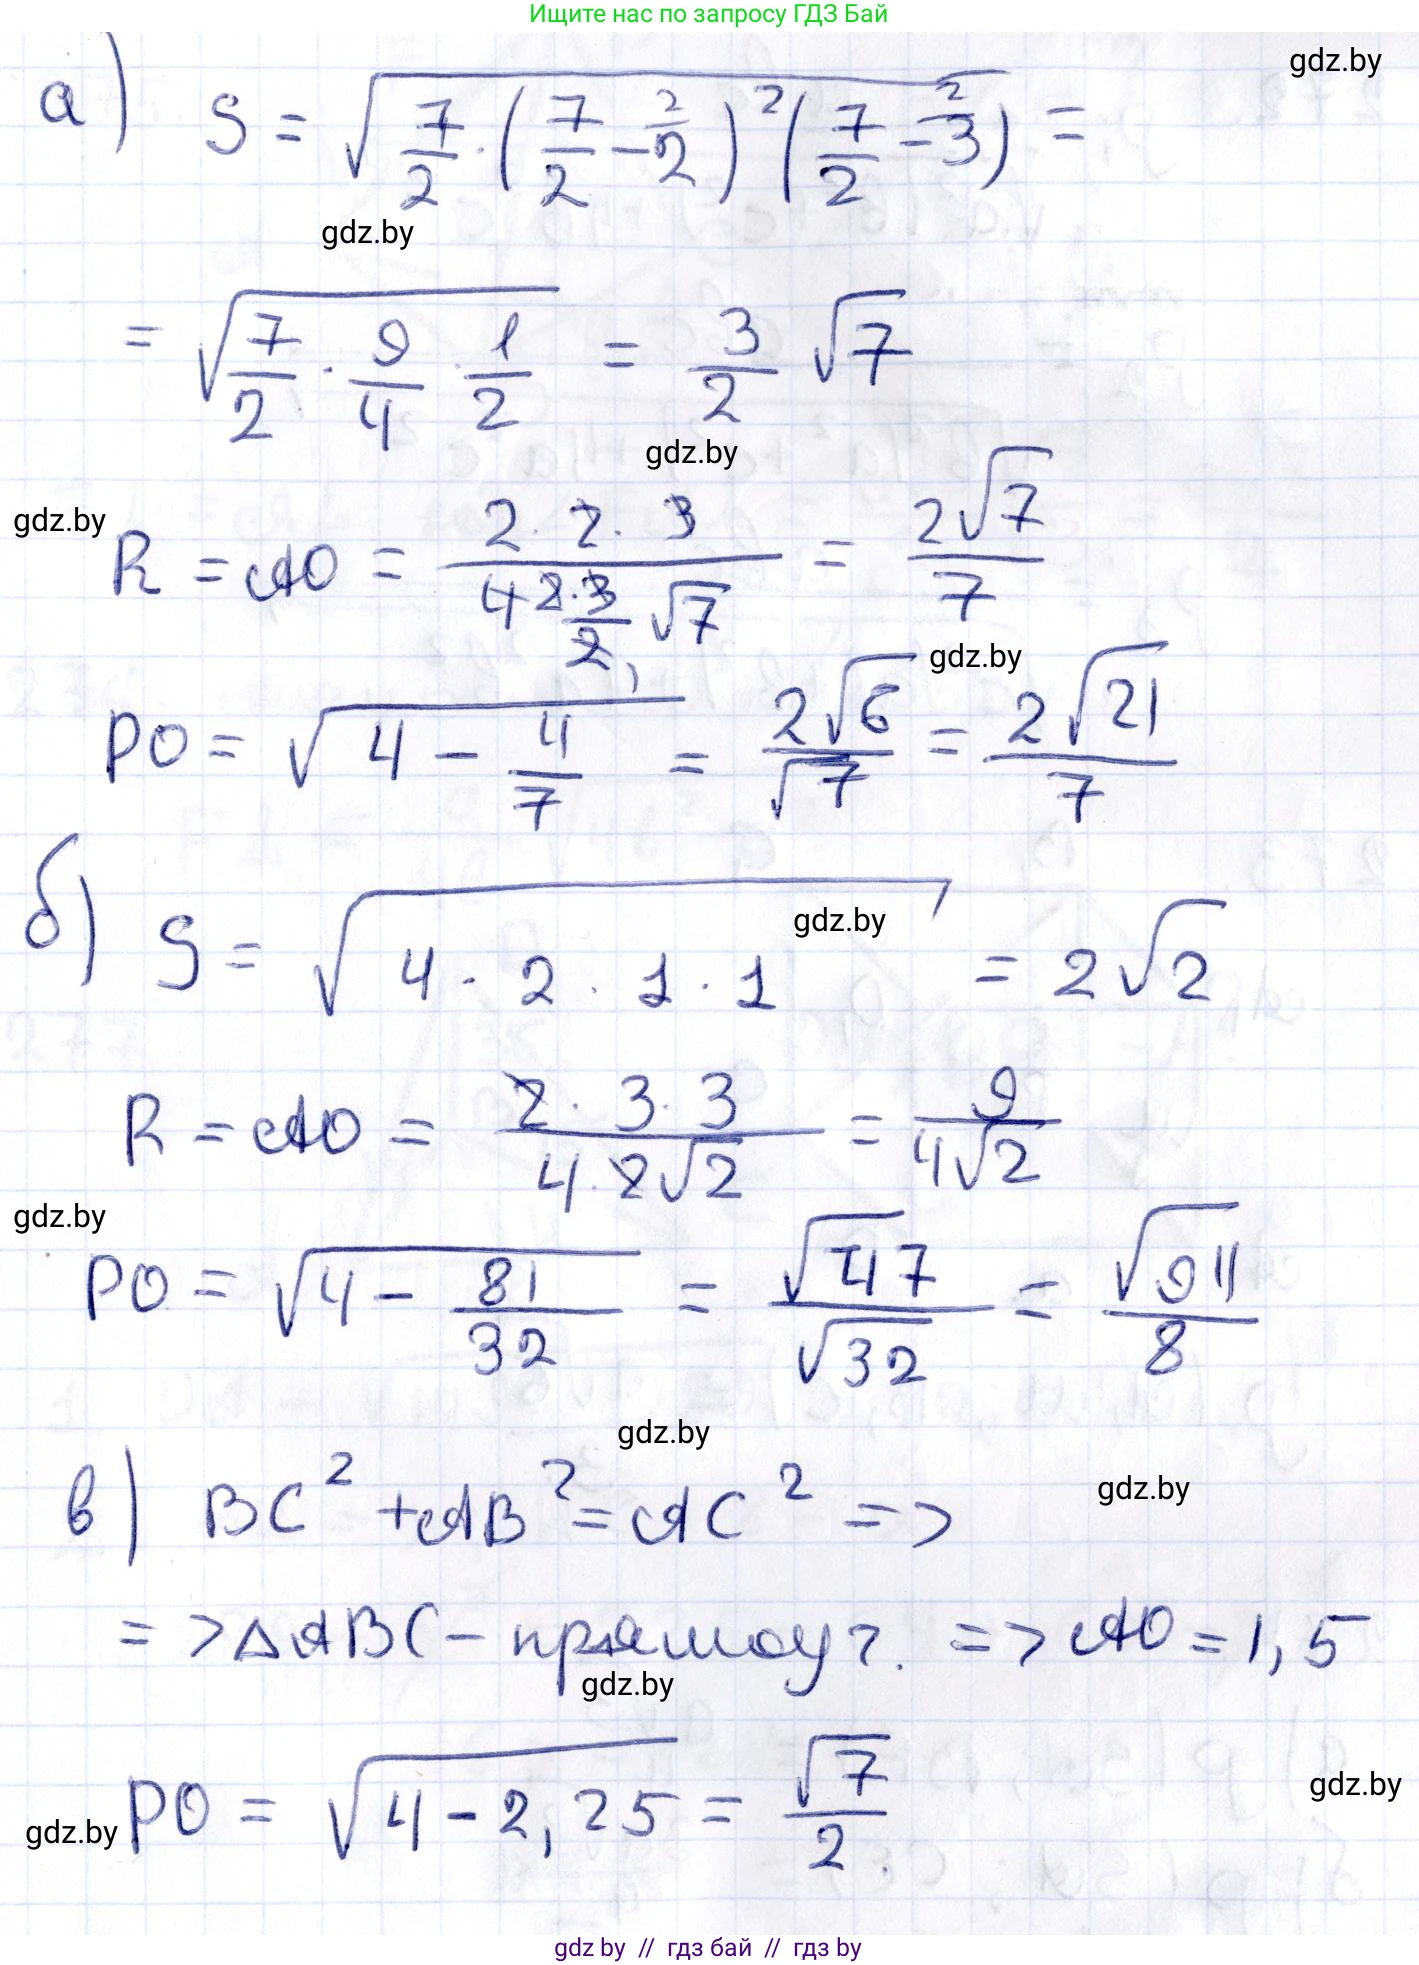 Ищите нас по запросу ГДЗ Бай
gdz.by
а) S = √(7/2 · (7/2 − 2/2)² (7/2 − 2/3)) =
gdz.by
= √(7/2 · 9/4 · 1/2) = 3/2 √7
gdz.by
gdz.by
R = AO = (2 · 2 · 3)/(4 2 · 3/2 √7) = 2√7/7
gdz.by
PO = √(4 − 4/7) = 2√6/√7 = 2√21/7
gdz.by
б) S = √(4 · 2 · 1 · 1) = 2√2
R = AO = (2 · 3 · 3)/(4 · 2√2) = 9/(4√2)
gdz.by
PO = √(4 − 81/32) = √47/√32 = √94/8
gdz.by
gdz.by
в) BC² + AB² = AC² =>
=> ΔABC − прямоуг. => AO = 1,5
gdz.by
gdz.by
PO = √(4 − 2,25) = √7/2
gdz.by
gdz by // гдз бай // гдз by